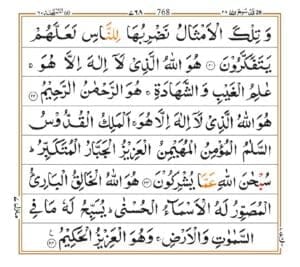 768
وَ تِلْكَ الْاَمْثَالُ نَضْرِبُهَا لِلنَّاسِ لَعَلَّهُمْ
يَتَفَكَّرُوْنَ ۝۲۱ هُوَ اللّٰهُ الَّذِیْ لَاۤ اِلٰهَ اِلَّا هُوَ ۚ
عٰلِمُ الْغَیْبِ وَ الشَّهَادَةِ ۚ هُوَ الرَّحْمٰنُ الرَّحِیْمُ ۝۲۲
هُوَ اللّٰهُ الَّذِیْ لَاۤ اِلٰهَ اِلَّا هُوَ ۚ اَلْمَلِكُ الْقُدُّوْسُ
السَّلٰمُ الْمُؤْمِنُ الْمُهَیْمِنُ الْعَزِیْزُ الْجَبَّارُ الْمُتَكَبِّرُ ؕ
سُبْحٰنَ اللّٰهِ عَمَّا یُشْرِكُوْنَ ۝۲۳ هُوَ اللّٰهُ الْخَالِقُ الْبَارِئُ
الْمُصَوِّرُ لَهُ الْاَسْمَآءُ الْحُسْنٰی ؕ یُسَبِّحُ لَهٗ مَا فِی
السَّمٰوٰتِ وَ الْاَرْضِ ۚ وَ هُوَ الْعَزِیْزُ الْحَكِیْمُ ۝۲۴